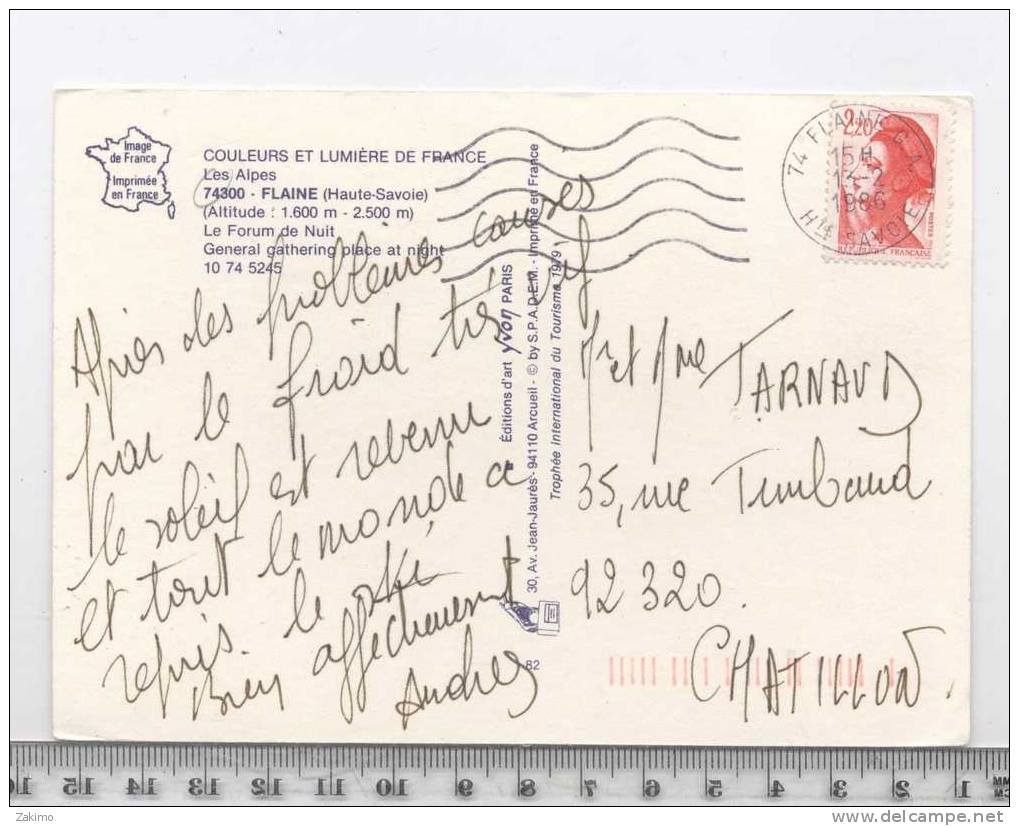 Image
de France
Imprimée
en France
COULEURS ET LUMIÈRE DE FRANCE
Les Alpes
74300 - FLAINE (Haute-Savoie)
(Altitude : 1.600 m - 2.500 m)
Le Forum de Nuit
General gathering place at night
10 74 5245
Après des problèmes causés
par le froid très vif
le soleil est revenu
et tout le monde a
repris le ski
Bien affectueusement
Andrée
Editions d'art yvon PARIS
30, Av. Jean-Jaurès - 94110 Arcueil - © by S.P.A.D.E.M. - Imprimé en France
Trophée International du Tourisme 1979
82
74 FLAINE C.A
15H
1986
Hte SAVOIE
2,20
POSTES
REPUBLIQUE FRANCAISE
Mr et Mme TARNAUD
35, rue Timbaud
92320
CHATILLON
16 15 14 13 12 11 10 9 8 7 6 5 4 3 2 1 MM
CM
Zakimo